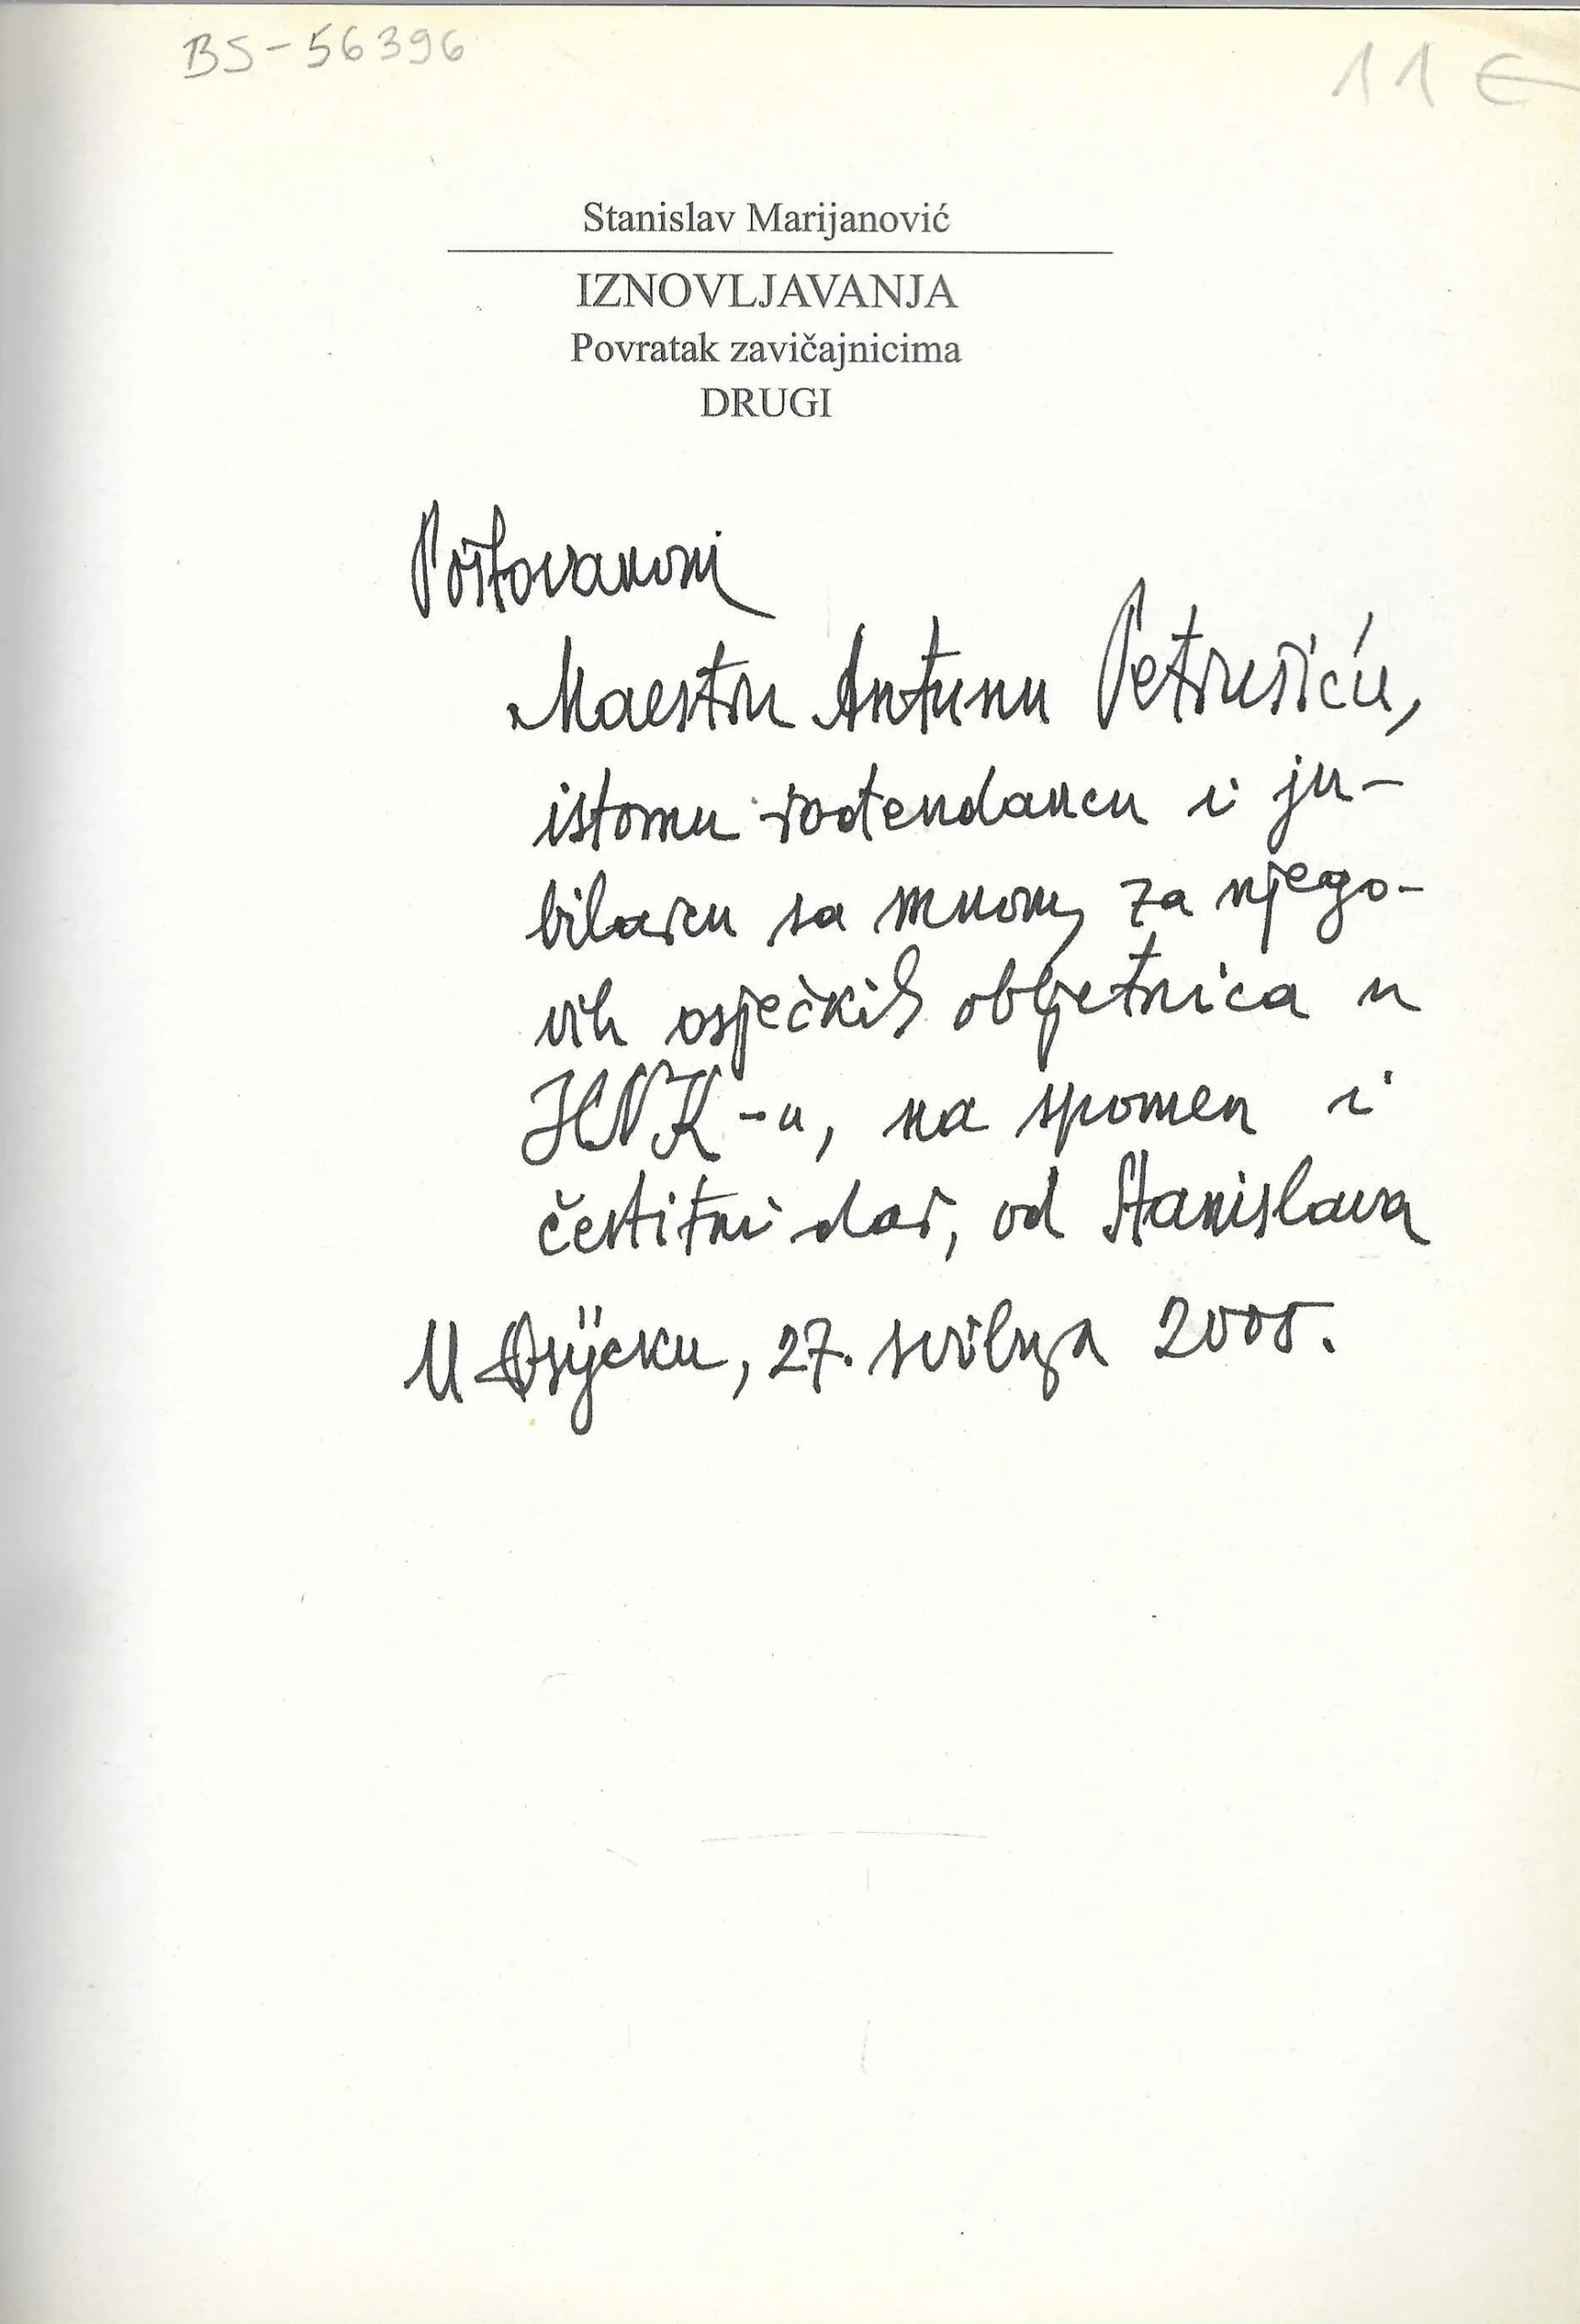 BS-56396
11 €
Stanislav Marijanović
IZNOVLJAVANJA
Povratak zavičajnicima
DRUGI
Poštovanom
Maestru Antunu Petrušiću,
istomu rođendancu i ju-
bilarcu sa mnom, za njego-
vih osječkih obljetnica u
HNK-u, na spomen i
čestitni dar, od Stanislava
U Osijeku, 27. svibnja 2005.